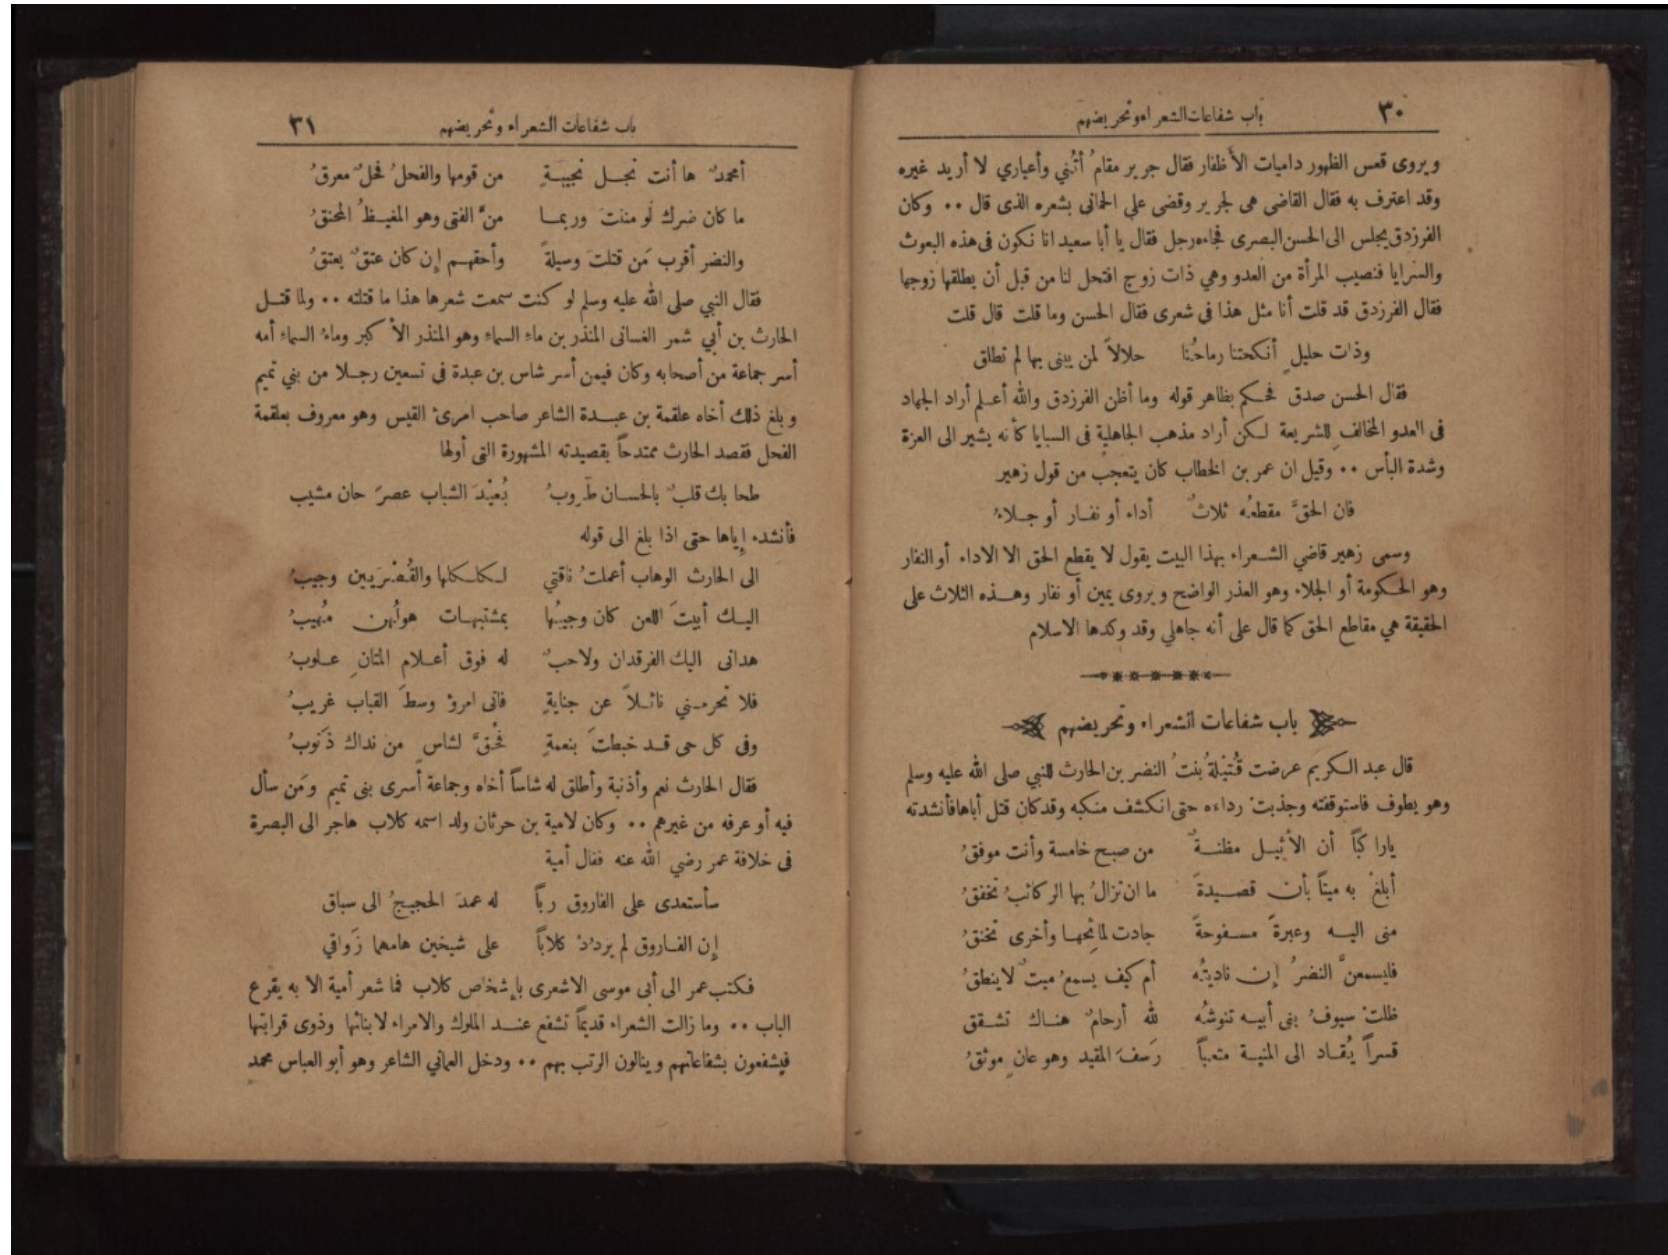 ٣٠
باب شفاعات الشعراء وتحريضهم
ويروى قعس الظهور داميات الأظفار فقال جرير مقامُ أتُني وأعياري لا أريد غيره
وقد اعترف به فقال القاضى هى لجرير وقضى على الحمانى بشعره الذى قال ٠٠ وكان
الفرزدق يجلس الى الحسن البصرى فجاءه رجل فقال يا أبا سعيد انا نكون فى هذه البعوث
والسرايا فنصيب المرأة من العدو وهي ذات زوج افتحل لنا من قبل أن يطلقها زوجها
فقال الفرزدق قد قلت أنا مثل هذا فى شعرى فقال الحسن وما قلت قال قلت
وذات حليلٍ أنكحتنا رماحُنا حلالاً لمن يبنى بها لم تطلق
فقال الحسن صدق فحكم بظاهر قوله وما أظن الفرزدق والله أعلم أراد الجهاد
فى العدو المخالف للشريعة لكن أراد مذهب الجاهلية فى السبايا كأنه يشير الى العزة
وشدة البأس ٠٠ وقيل ان عمر بن الخطاب كان يتعجب من قول زهير
فان الحقَّ مقطعُه ثلاثٌ أداء أو نفار أو جلاءُ
وسمى زهير قاضي الشعراء بهذا البيت يقول لا يقطع الحق الا الاداء أو النفار
وهو الحكومة أو الجلاء وهو العذر الواضح ويروى يمين أو نفار وهذه الثلاث على
الحقيقة هي مقاطع الحق كما قال على أنه جاهلي وقد وكدها الاسلام
باب شفاعات الشعراء وتحريضهم
قال عبد الكريم عرضت قُتَيْلةُ بنتُ النضر بن الحارث للنبي صلى الله عليه وسلم
وهو يطوف فاستوقفته وجذبت رداءه حتى انكشف منكبه وقد كان قتل أباها فأنشدته
ياراكباً أن الأثيل مظنةٌ من صبح خامسة وأنت موفقُ
أبلغْ به ميتاً بأن قصيدةً ما ان تزالُ بها الركائبُ تخفقُ
منى اليه وعبرةً مسفوحةً جادت لمائِحها وأخرى تخنقُ
فليسمعنَّ النضرُ إن ناديتُه أم كيف يسمعُ ميتٌ لا ينطقُ
ظلتْ سيوفُ بنى أبيه تنوشُه لله أرحامٌ هناك تشقق
قسراً يُقاد الى المنية متعباً رَسفَ المقيد وهو عانٍ موثقُ
باب شفاعات الشعراء وتحريضهم
٣١
أمحمدٌ ها أنت نجل نجيبةٍ من قومها والفحلُ فحلٌ معرقُ
ما كان ضرك لو مننتَ وربما منَّ الفتى وهو المغيظُ المحنقُ
والنضر أقرب مَن قتلتَ وسيلةً وأحقهم إن كان عتقٌ يعتقُ
فقال النبي صلى الله عليه وسلم لو كنت سمعت شعرها هذا ما قتلته ٠٠ ولما قتل
الحارث بن أبي شمر الغسانى المنذر بن ماء السماء وهو المنذر الأكبر وماءُ السماء أمه
أسر جماعة من أصحابه وكان فيمن أسر شاس بن عبدة فى تسعين رجلا من بني تميم
وبلغ ذلك أخاه علقمة بن عبدة الشاعر صاحب امرئ القيس وهو معروف بعلقمة
الفحل فقصد الحارث ممتدحاً بقصيدته المشهورة التى أولها
طحا بك قلبٌ بالحسان طروبُ بُعَيْدَ الشباب عصرَ حان مشيب
فأنشده إياها حتى اذا بلغ الى قوله
الى الحارث الوهاب أعملتُ ناقتي لكلكلها والقُصْرَيين وجيبُ
اليك أبيتَ اللعن كان وجيبُها بمشتبهات هولُهن مُهيبُ
هدانى اليك الفرقدان ولاحبٌ له فوق أعلام المتانِ علوبُ
فلا تحرمني نائلاً عن جنايةٍ فانى امرؤ وسطَ القباب غريبُ
وفى كل حى قد خبطتَ بنعمةٍ فحُقَّ لشاسٍ من نداك ذَنوبُ
فقال الحارث نعم وأذنبة وأطلق له شاساً أخاه وجماعة أسرى بنى تميم ومَن سأل
فيه أو عرفه من غيرهم ٠٠ وكان لامية بن حرثان ولد اسمه كلاب هاجر الى البصرة
فى خلافة عمر رضي الله عنه فقال أمية
سأستعدى على الفاروق رباً له عمدَ الحجيجُ الى سباق
إن الفاروق لم يرددْ كلاباً على شيخين هامهما زَواقي
فكتب عمر الى أبى موسى الاشعرى بإشخاص كلاب فما شعر أمية الا به يقرع
الباب ٠٠ وما زالت الشعراء قديماً تشفع عند الملوك والامراء لابنائها وذوى قرابتها
فيشفعون بشفاعاتهم وينالون الرتب بهم ٠٠ ودخل العماني الشاعر وهو أبو العباس محمد